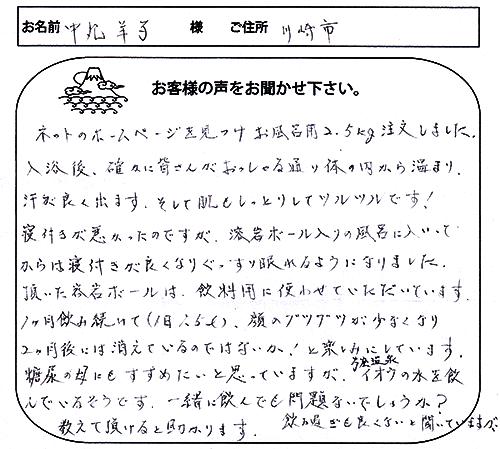 お名前 中丸 羊子 様 ご住所 川崎市
お客様の声をお聞かせ下さい。
ネットのホームページを見つけお風呂用2.5kg注文しました。
入浴後、確かに皆さんがおっしゃる通り体の内から温まり、
汗が良く出ます。そして肌もしっとりしてツルツルです!
寝付きが悪かったのですが、溶岩ボール入りの風呂に入いって
からは寝付きが良くなりぐっすり眠れるようになりました。
頂いた溶岩ボールは、飲料用に使わせていただいています。
1ヶ月飲み続けて(1日1.5ℓ)、顔のブツブツが少なくなり
2ヶ月後には消えているのではないか!と楽しみにしています。
糖尿の母にもすすめたいと思っていますが、イオウの水を飲
んでいるそうです。一緒に飲んでも問題ないでしょうか?
飲み過ぎも良くないと聞いていますが、
教えて頂けると助かります。